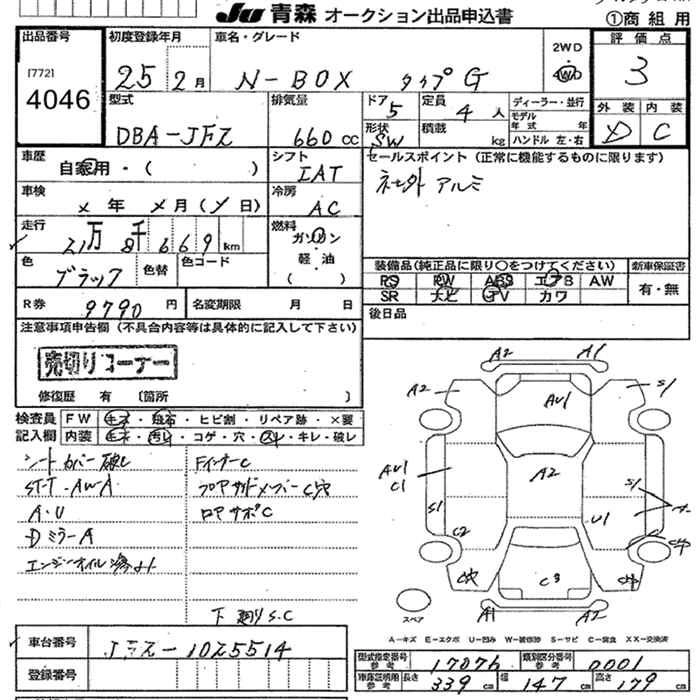 JU 青森 オークション出品申込書
①商組用
出品番号
[772]
4046
初度登録年月
25 2月
車名・グレード
N-BOX タイプG
2WD
4WD
評価点
3
外装 内装
D C
型式
DBA-JF2
排気量
660cc
ドア 5
形状 SW
定員 4人
積載 kg
ディーラー・並行
モデル年式 年
ハンドル 左・右
車歴
自家用・( )
シフト
IAT
セールスポイント (正常に機能するものに限ります)
社外 アルミ
車検
×年 ×月(×日)
冷房
AC
走行
21万8千669km
燃料
ガソリン
軽・油
( )
色
ブラック
色替
色コード
装備品(純正品に限り○をつけてください)
新車保証書
PS PW ABS エアB AW
SR ナビ TV カワ
有・無
R券 9790円
名変期限 月 日
後日品
注意事項申告欄 (不具合内容等は具体的に記入して下さい)
売切りコーナー
修復歴 有 〔箇所 〕
検査員 FW キズ・飛石・ヒビ割・リペア跡・×要
記入欄 内装 キズ・汚レ・コゲ・穴・スレ・キレ・破レ
シートカバー破レ
ST-T・AWA
A・U
DミラーA
エンジンオイル滲ミ
FインナーC
フロアサイドメンバーC穴
ロアサポC
下廻りS.C
A2 A1
A2 S1
AU1
AU1
C1
A2
S1
S1
C2
U1
C穴
C3
C穴
C穴
A1 A2
スペア
A-キズ E-エクボ U-凹み W-波修跡 S-サビ C-腐食 XX-交換済
車台番号
JF2-1025514
登録番号
型式指定番号 参考 17076
類別区分番号 参考 0001
車庫証明用 参考 長さ 339cm 幅 147cm 高さ 179cm